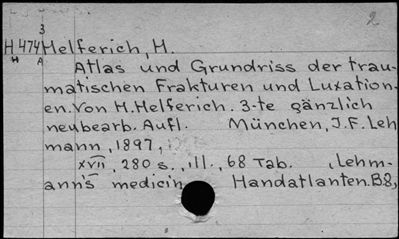 2
3
H 474 Helferich, H.
H A
Atlas und Grundriss der trau-
matischen Frakturen und Luxation-
en. Von H. Helferich. 3-te gänzlich
neubearb. Aufl. München, J. F. Leh
mann, 1897,
XVII, 280 s., ill., 68 Tab. (Lehm-
ann's medicin Handatlanten. B8,